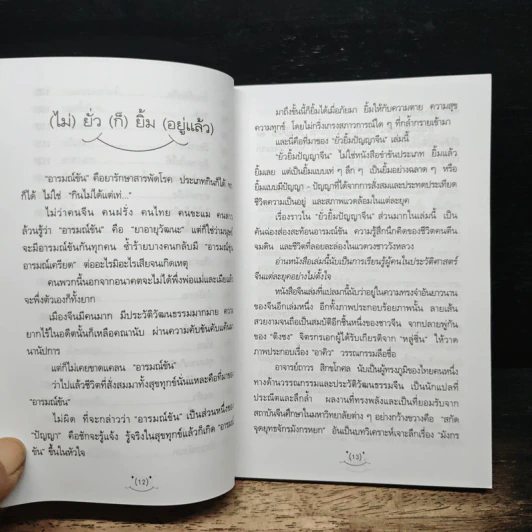 (ไม่) ยั่ว (ก็) ยิ้ม (อยู่แล้ว)
"อารมณ์ขัน" คือยารักษาสารพัดโรค ประเภทกินก็ได้
ก็ได้ ไม่ใช่ "กินไม่ได้แต่เท่..."
ไม่ว่าคนจีน คนฝรั่ง คนไทย คนขะแม
ล้วนรู้ว่า "อารมณ์ขัน" คือ "ยาอายุวัฒนะ" แต่ก็ใช่ว่า
จะมีอารมณ์ขันกันทุกคน ซ้ำร้ายบางคนกลับมี
อารมณ์เครียด" ต่ออะไรมิอะไรเสียจนเกิดเหตุ
คนพวกนี้นอกจากอนาคตจะไม่ได้พึ่งพ่อแม่และเมียแล้ว
จะพึ่งตัวเองก็ทั้งยาก
เมืองจีนมีคนมาก มีประวัติวัฒนธรรมมากมาย
ยากไร้ในอดีตนั้นก็เหลือคณานับ ผ่านความคับขันคับแค้น
นานัปการ
แต่ก็ไม่เคยขาดแคลน "อารมณ์ขัน"
ว่าไปแล้วชีวิตที่สั่งสมมาทั้งสุขทุกข์นั่นแหละคือที่มา
"อารมณ์ขัน"
ไม่ผิด ที่จะกล่าวว่า "อารมณ์ขัน" เป็นส่วนหนึ่งของ
"ปัญญา" คือซักจะรู้แจ้ง รู้จริงในสุขทุกข์แล้วก็เกิด "อารมณ์
ขัน" ขึ้นในหัวใจ
(12)
มาถึงขั้นนี้ก็ยิ้มได้เมื่อภัยมา ยิ้มให้กับความตาย ความสุข
ความทุกข์ โดยไม่กริ่งเกรงสภาวการณ์ใด ๆ ที่กล้ำกรายเข้ามา
และนี่คือที่มาของ "ยั่วยิ้มปัญญาจีน" เล่มนี้
"ยั่วยิ้มปัญญาจีน" ไม่ใช่หนังสือขำขันประเภท ยิ้มแล้ว
ยิ้มเลย แต่เป็นยิ้มแบบเท่ ๆ ลึก ๆ เป็นยิ้มอย่างฉลาด ๆ หรือ
ยิ้มแบบมีปัญญา - ปัญญาที่ได้จากการสั่งสมและประหยัด
ชีวิตความเป็นอยู่ และสภาพแวดล้อมในแต่ละยุค
เรื่องราวใน "ยั่วยิ้มปัญญาจีน" ส่วนมากในเล่มนี้ เป็น
คันฉ่องส่องสะท้อนอารมณ์ขัน ความรู้สึกนึกคิดของชีวิตคนตีน
จมดิน และชีวิตที่ลอยละล่องในแวดวงชาววังหลวง
อ่านหนังสือเล่มนี้นับเป็นการเรียนรู้ผู้คนในประวัติศาสตร์
จีนแต่ละยุคอย่างไม่ตั้งใจ
หนังสือจีนเล่มที่แปลมานี้นับว่าอยู่ในความทรงจำอันยาวนาน
ของจีนอีกเล่มหนึ่ง อีกทั้งภาพประกอบร้อยภาพนั้น ลายเส้น
สวยงามจนถือเป็นสมบัติอีกชิ้นหนึ่งของชาวจีน จากปลายพู่กัน
ของ "ติงชง" จิตรกรเอกผู้ได้รับเกียรติจาก "หลู่ซิ่น" ให้วาด
ภาพประกอบเรื่อง "อาคิว" วรรณกรรมลือชื่อ
อาจารย์ถาวร สิกขโกศล นับเป็นผู้ทรงภูมิของไทยคนหนึ่ง
ทางด้านวรรณกรรมและประวัติวัฒนธรรมจีน เป็นนักแปลที่
ประณีตและลึกล้ำ ผลงานที่ทรงพลังและเป็นที่ยอมรับจาก
สถาบันจีนศึกษาในมหาวิทยาลัยต่าง ๆ อย่างกว้างขวางคือ "สกัด
จุดยุทธจักรมังกรหยก" อันเป็นบทวิเคราะห์เจาะลึกเรื่อง "มังกร
(13)